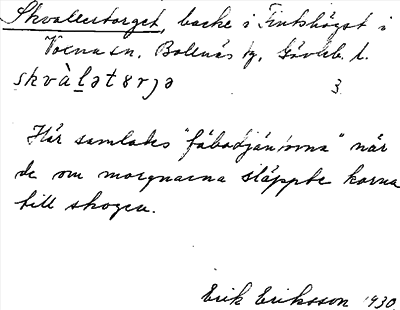 Skvallertorget, backe i Finkshögst i
Voxna sn, Bollnäs tg, Gävleb. l.
skvàlətɵrjə 3
Här samlades "fäbodjäntorna" när
de om morgnarna släppte korna
till skogen.
Erik Eriksson 1930